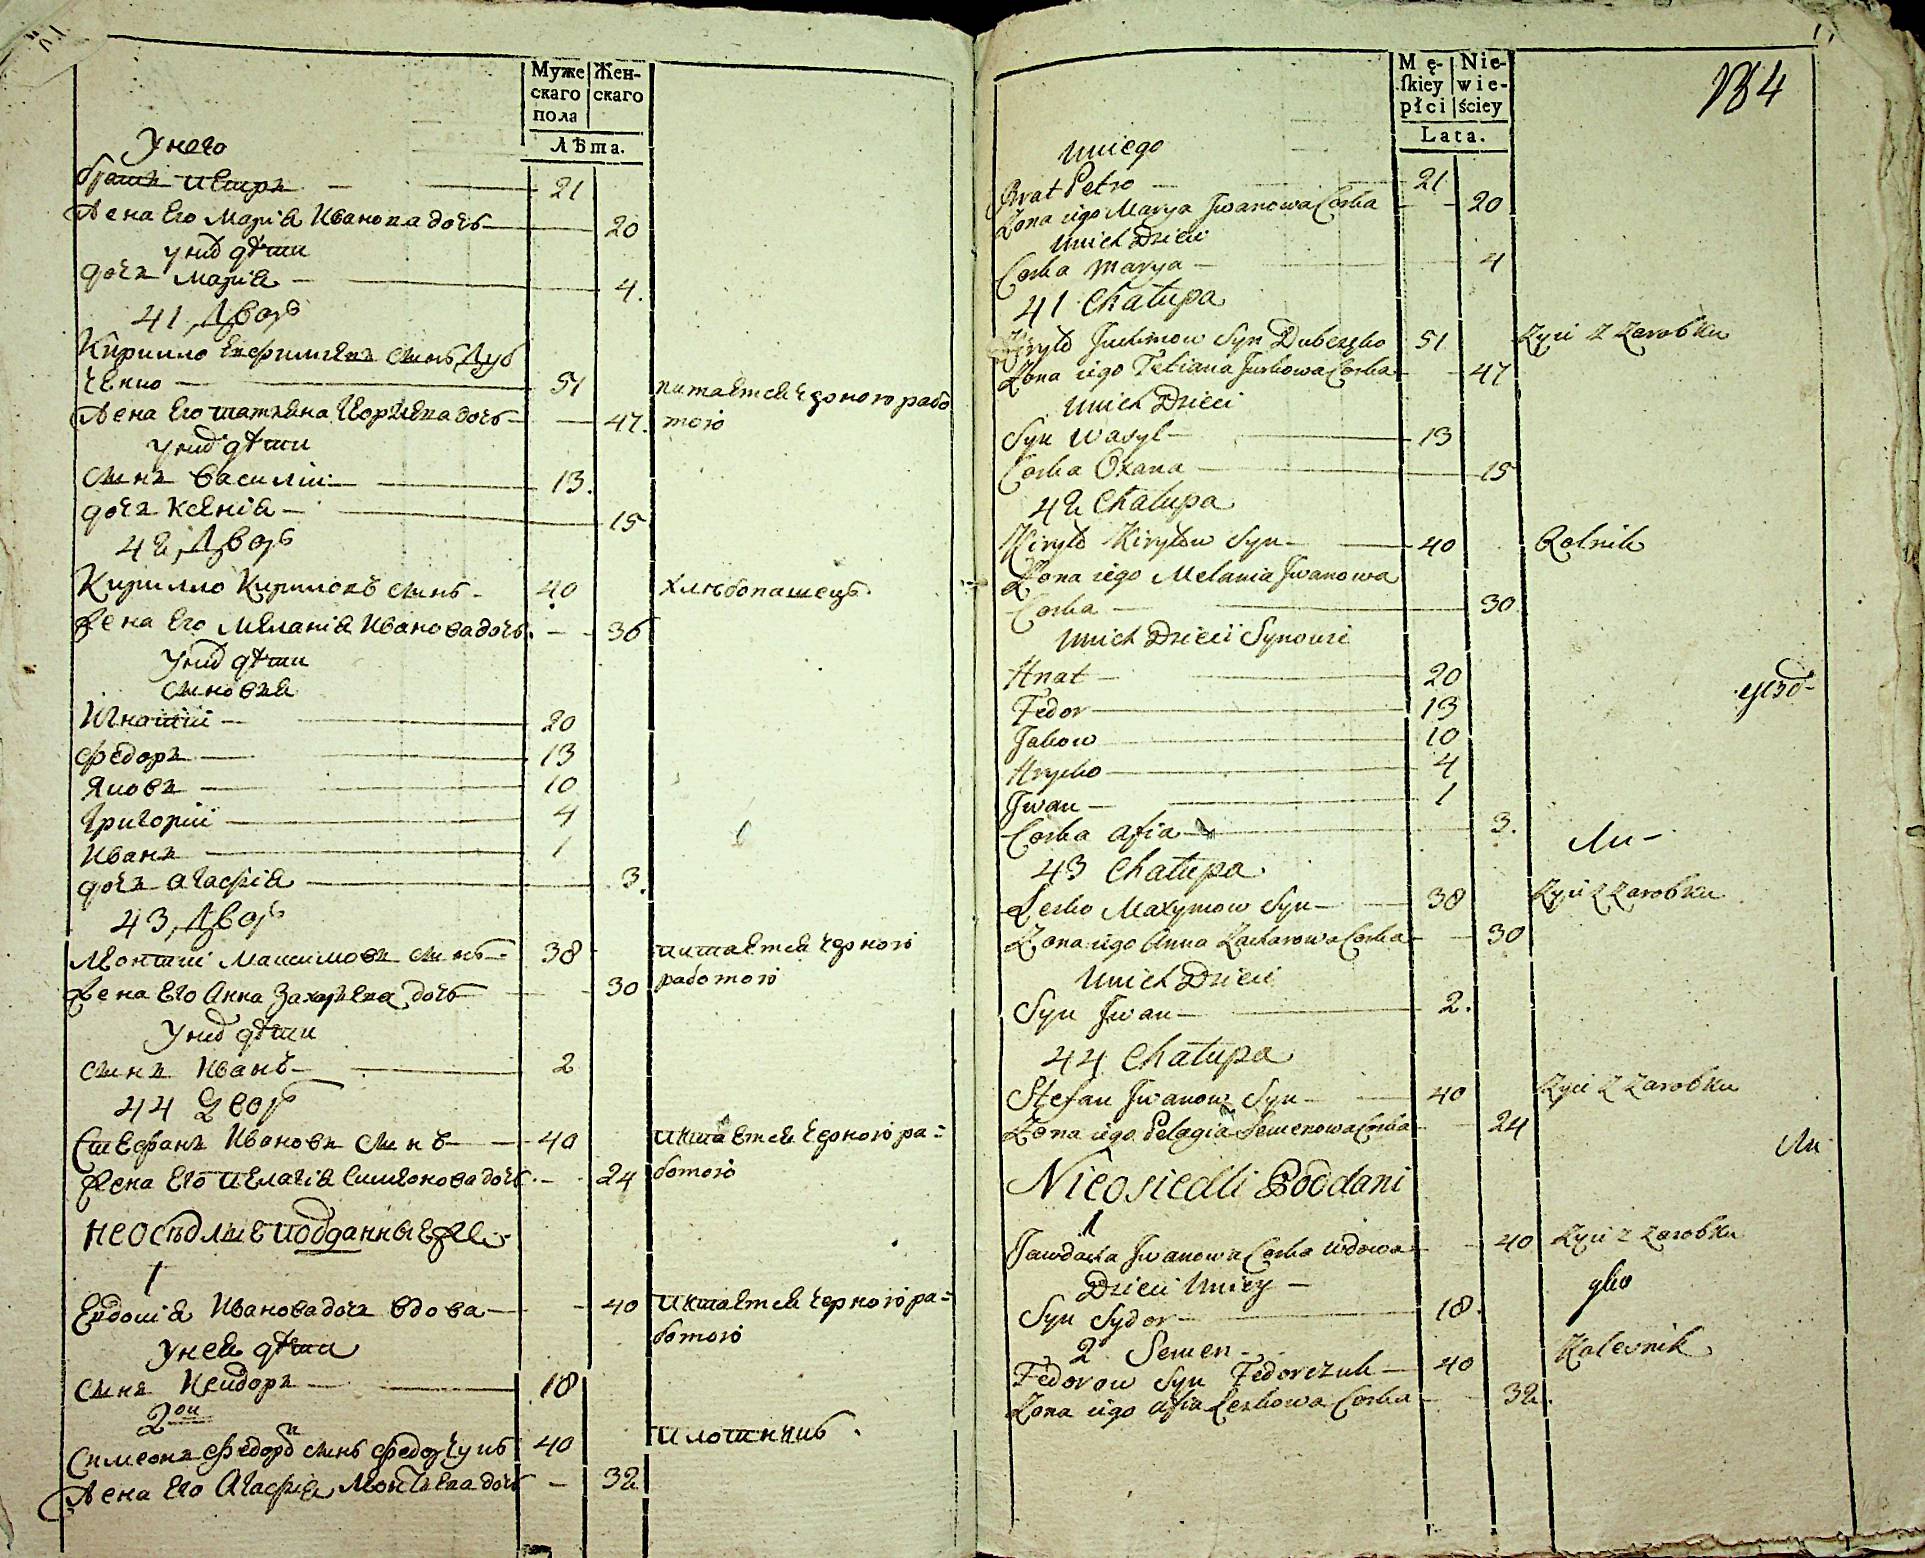 Муже
скаго
пола
Жен-
скаго
Лѣта.
У него
братъ Петръ — 21
Жена Его Марія Иванова дочь — 20
у них дѣти
дочъ Марія — 4.
41 Двор
Кирилло Ефимовъ синь Дуб
ченко — 51
питается чорного рабо
Жена Его татяна Юркова дочь — 47.
тою
у них дѣти
синъ Василій — 13.
дочъ Ксенія — 15
42 Двор
Кирилло Кириловъ синь — 40 хлѣбопашець.
Жена Его Меланія Иванова дочь. — 36
У них дѣти
синовя
Игнатій — 20
Федоръ — 13
Яковъ — 10
Григорій — 4
Иванъ — 1
дочъ Агафія — 3.
43 Двор
Леонтій Максимовъ синь — 38 питается чорного
Жена Его Анна Захарьева дочь — 30 работою
У них дѣти
синъ Иванъ — 2
44 Двор
Стефанъ Ивановъ синъ — 40 питается чорного ра=
Жена Его Пелагія Симионова дочь. — 24 ботою
Неосѣдлые подданные
1
Евдокія Иванова дочъ вдова — 40 питается чорного ра=
ботою
У неи дѣти
синъ Исидоръ — 18
2ои
Симеонъ Федоров синь Федорчукъ 40 плотникъ.
Жена Его Агафія Леонтьева дочь — 32
184
Mę-
skiey
płci
Nie-
wie-
ściey
Lata.
U niego
Brat Petro — 21
Zona iego Marya Jwanowa Corka — 20
U nich Dzieci
Corka Marya — 4
41 Chałupa
Kiryło Juchimow Syn Dubczeko 51 Zyie z Zarobku
Zona iego Tetiana Jurkowa Corka — 47
U nich Dzieci
Syn Wasyl — 13
Corka Oxana — 15
42 Chałupa
Kiryło Kiryłow Syn — 40 Rolnik
Zona iego Melania Jwanowa
Corka — 30
U nich Dzieci Synowie
Hnat — 20
Fedor — 13
Jakow — 10
Hryćko — 4
Jwan — 1
Corka Afia — 3.
43 Chałupa
Lesko Maxymow Syn — 38 Zyie z Zarobku
Zona iego Anna Zacharowa Corka — 30
U nich Dzieci
Syn Jwan — 2.
44 Chałupa
Stefan Jwanow Syn — 40 Zyie z Zarobku
Zona iego Pelagia Semenowa Corka — 24
Nieosiedli Poddani
1
Jawdocha Jwanowa Corka Wdowa — 40 Zyie z Zarobku
Dzieci U niey —
Syn Sydor — 18.
2 Semen
Fedorow Syn Fedorczuk — 40 Kolesnik
Zona iego Afia Leskowa Corka — 32.